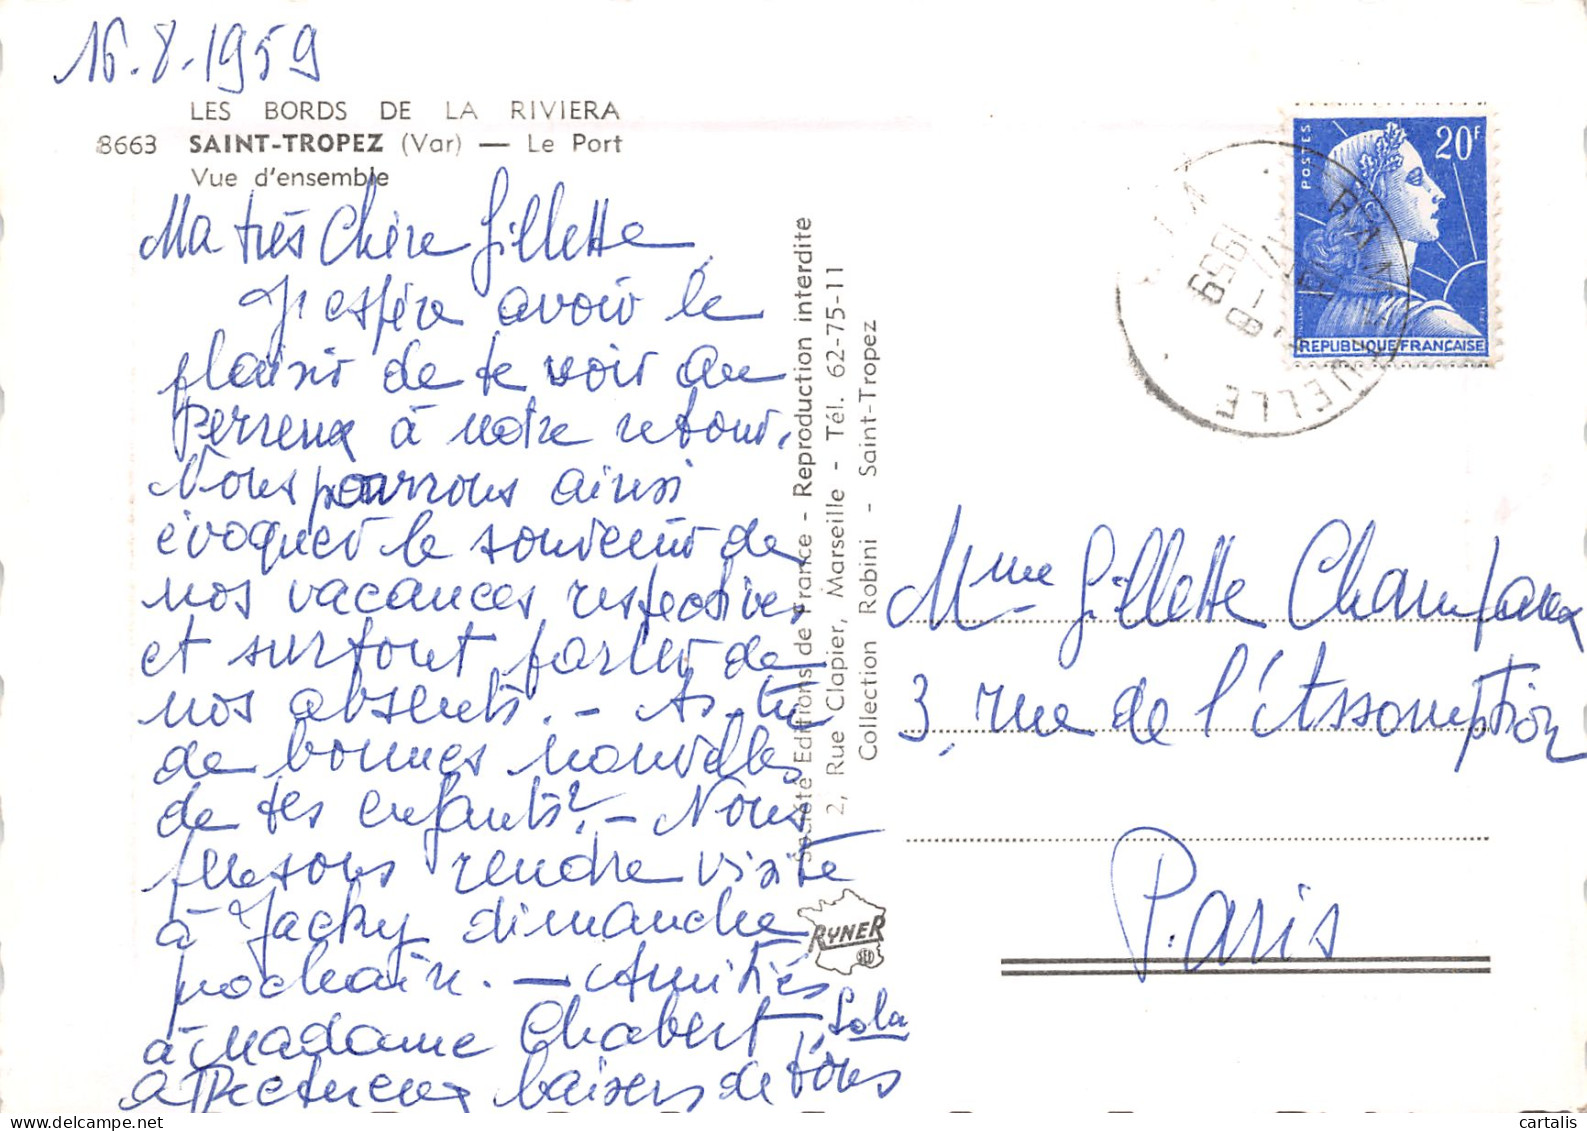 16.8.1959
LES BORDS DE LA RIVIERA
8663 SAINT-TROPEZ (Var) — Le Port
Vue d'ensemble
Ma très Chère Gillette,
J'espère avoir le
plaisir de te voir au
Perreux à notre retour.
Nous pourrons ainsi
évoquer le souvenir de
nos vacances respectives
et surtout parler de
nos absents. — As-tu
de bonnes nouvelles
de tes enfants? — Nous
pensons rendre visite
à Jacky dimanche
prochain. — Amitiés
à Madame Chabert,
affectueux baisers de tous
Lola
Société Editions de France - Reproduction interdite
2, Rue Clapier, Marseille - Tél. 62-75-11
Collection Robini - Saint-Tropez
RYNER
POSTES
20F
REPUBLIQUE FRANÇAISE
1959
Mme Gillette
3, rue de l'Assomption
Paris
cartalis